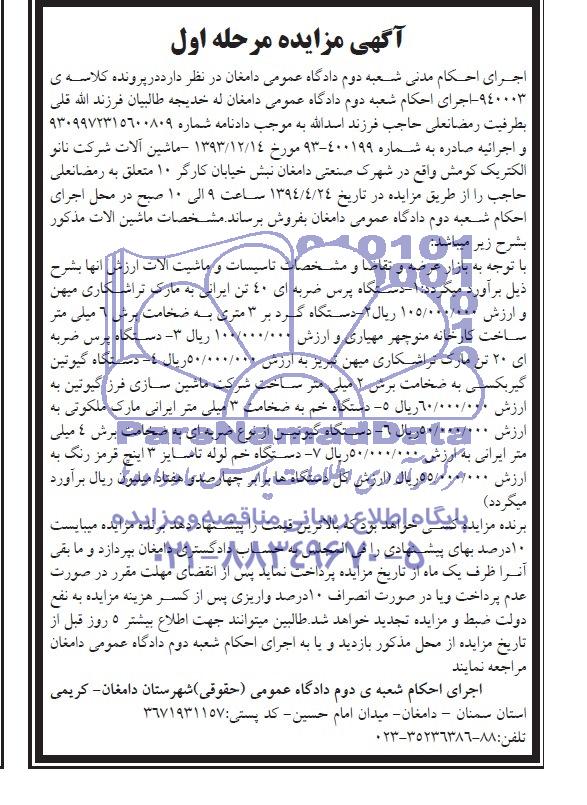 آگهی مزایده مرحله اول
اجرای احکام مدنی شعبه دوم دادگاه عمومی دامغان در نظر دارددرپرونده کلاسه ی
۹۴۰۰۰۳-اجرای احکام شعبه دوم دادگاه عمومی دامغان له خدیجه طالبیان فرزند الله قلی
بطرفیت رمضانعلی حاجب فرزند اسدالله به موجب دادنامه شماره ۹۳۰۹۹۷۲۳۱۵۶۰۰۸۰۹
و اجرائیه صادره به شماره ۹۳-۴۰۰۱۹۹ مورخ ۱۳۹۳/۱۲/۱۴ -ماشین آلات شرکت نانو
الکتریک کومش واقع در شهرک صنعتی دامغان نبش خیابان کارگر ۱۰ متعلق به رمضانعلی
حاجب را از طریق مزایده در تاریخ ۱۳۹۴/۴/۲۴ ساعت ۹ الی ۱۰ صبح در محل اجرای
احکام شعبه دوم دادگاه عمومی دامغان بفروش برساند.مشخصات ماشین الات مذکور
بشرح زیر میباشد:
با توجه به بازار عرضه و تقاضا و مشخصات تاسیسات و ماشیت آلات ارزش انها بشرح
ذیل برآورد میگردد:۱-دستگاه پرس ضربه ای ۴۰ تن ایرانی به مارک تراشکاری میهن
و ارزش ۱۰۵/۰۰۰/۰۰۰ ریال۲-دستگاه گرد بر ۳ متری به ضخامت برش ۶ میلی متر
ساخت کارخانه منوچهر مهیاری و ارزش ۱۰۰/۰۰۰/۰۰۰ ریال ۳- دستگاه پرس ضربه
ای ۲۰ تن مارک تراشکاری میهن تبریز به ارزش ۵۰/۰۰۰/۰۰۰ریال ۴- دستگاه گیوتین
گیربکسی به ضخامت برش ۲ میلی متر ساخت شرکت ماشین سازی فرز گیوتین به
ارزش ۶۰/۰۰۰/۰۰۰ریال ۵- دستگاه خم به ضخامت ۳ میلی متر ایرانی مارک ملکوتی به
ارزش ۵۰/۰۰۰/۰۰۰ریال ۶- دستگاه گیوتین از نوع ضربه ای به ضخامت برش ۴ میلی
متر ایرانی به ارزش ۵۰/۰۰۰/۰۰۰ریال ۷- دستگاه خم لوله تاسایز ۳ اینچ قرمز رنگ به
ارزش ۵۵/۰۰۰/۰۰۰ریال (ارزش کل دستگاه ها برابر چهارصدو هفتاد میلیون ریال برآورد
میگردد)
برنده مزایده کسی خواهد بود که بالاترین قیمت را پیشنهاد دهد برنده مزایده میبایست
۱۰درصد بهای پیشنهادی را فی المجلس به حساب دادگستری دامغان بپردازد و ما بقی
آنرا ظرف یک ماه از تاریخ مزایده پرداخت نماید پس از انقضای مهلت مقرر در صورت
عدم پرداخت ویا در صورت انصراف ۱۰درصد واریزی پس از کسر هزینه مزایده به نفع
دولت ضبط و مزایده تجدید خواهد شد.طالبین میتوانند جهت اطلاع بیشتر ۵ روز قبل از
تاریخ مزایده از محل مذکور بازدید و یا به اجرای احکام شعبه دوم دادگاه عمومی دامغان
مراجعه نمایند
اجرای احکام شعبه ی دوم دادگاه عمومی (حقوقی)شهرستان دامغان- کریمی
استان سمنان - دامغان- میدان امام حسین- کد پستی:۳۶۷۱۹۳۱۱۵۷
تلفن:۸۸-۳۵۲۳۶۳۸۶-۰۲۳
ParsNamadData
پایگاه اطلاع رسانی مناقصه و مزایده
۰۲۱-۸۸۳۴۹۶۷۰-۵